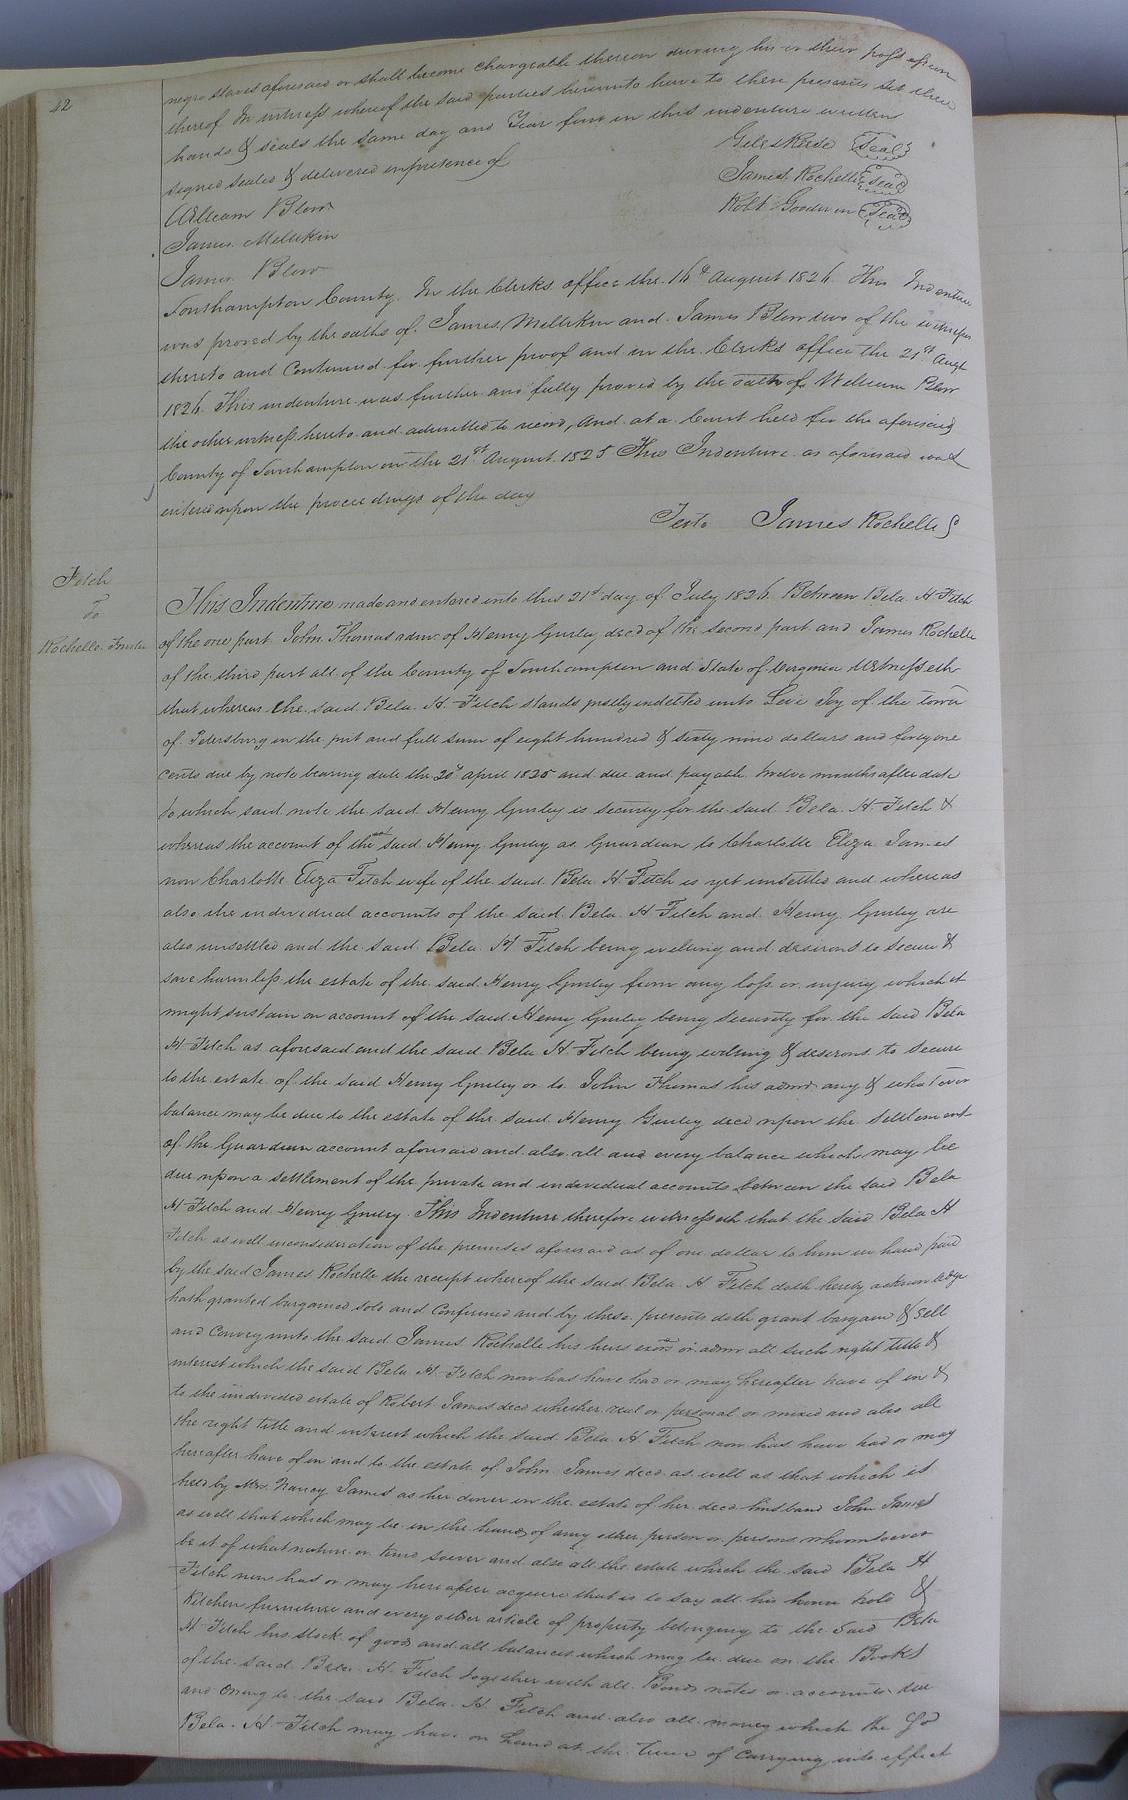 42
negro slaves aforesaid or shall become chargeable thereon during his or their possession
thereof In witness whereof the said parties hereunto have to these presents set their
hands & seals the same day and Year first in this indenture written
signed sealed & delivered in presence of
Giles Reese Seal
William Blow
James Rochelle Seal
James Millikin
Robt Goodwin Seal
James Blow
Southampton County. In the Clerks office the 16th August 1826. This Indenture
was proved by the oaths of James Millikin and James Blow two of the witnesses
thereto and Continued for further proof and in the Clerks office the 21st Augt
1826. This indenture was further and fully proved by the oath of William Blow
the other witness hereto and admitted to record, And at a Court held for the aforesaid
County of Southampton on the 21st August 1825 This Indenture as aforesaid was
entered upon the proceedings of the day
Teste James Rochelle
Fitch
To
Rochelle Trustee
This Indenture made and entered into this 21st day of July 1826. Between Bela H Fitch
of the one part John Thomas admr of Henry Gurley decd of the second part and James Rochelle
of the third part all of the County of Southampton and State of Virginia Witnesseth
that whereas the said Bela H Fitch stands justly indebted unto Levi Joy of the town
of Petersburg in the just and full sum of eight hundred & sixty nine dollars and forty one
cents due by note bearing date the 20th april 1825 and due and payable twelve months after date
to which said note the said Henry Gurley is security for the said Bela H Fitch &
whereas the account of the said Henry Gurley as Guardian to Charlotte Eliza James
now Charlotte Eliza Fitch wife of the said Bela H Fitch is yet unsettled and whereas
also the individual accounts of the said Bela H Fitch and Henry Gurley are
also unsettled and the said Bela H Fitch being willing and desirous to secure &
save harmless the estate of the said Henry Gurley from any loss or injury which it
might sustain on account of the said Henry Gurley being security for the said Bela
H Fitch as aforesaid and the said Bela H Fitch being willing & desirous to secure
to the estate of the said Henry Gurley or to John Thomas his admr any & whatever
balance may be due to the estate of the said Henry Gurley decd upon the settlement
of the Guardian account aforesaid and also all and every balance which may be
due upon a settlement of the private and individual accounts between the said Bela
H Fitch and Henry Gurley. This Indenture therefore witnesseth that the said Bela H
Fitch as well inconsideration of the premises aforesaid as of one dollar to him in hand paid
by the said James Rochelle the receipt whereof the said Bela H Fitch doth hereby acknowledge
hath granted bargained sold and Confirmed and by these presents doth grant bargain & sell
and Convey unto the said James Rochelle his heirs exors or admr all such right title &
interest which the said Bela H Fitch now has have had or may hereafter have of in &
to the undivided estate of Robert James decd whether real or personal or mixed and also all
the right title and interest which the said Bela H Fitch now has have had or may
hereafter have of in and to the estate of John James decd as well as that which is
held by Mrs. Nancy James as her dower in the estate of her decd husband John James
as well that which may be in the hands of any other person or persons whomsoever
be it of what nature or kind soever and also all the estate which the said Bela H
Fitch now has or may hereafter acquire that is to say all his house hold &
Kitchen furniture and every other article of property belonging to the said Bela
H Fitch his stock of goods and all balances which may be due on the Books
of the said Bela H Fitch together with all Bonds notes or accounts due
and owing to the said Bela H Fitch and also all money which the sd
Bela H Fitch may have on hand at the time of carrying into effect